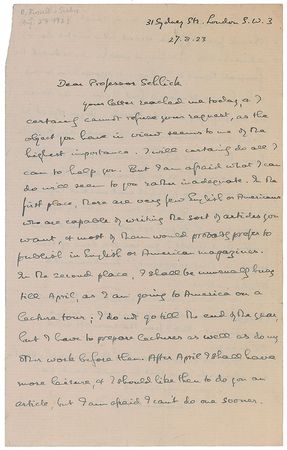 31 Sydney Str. London S.W. 3
27. 8. 23
Dear Professor Schlick
Your letter reached me today, & I
certainly cannot refuse your request, as the
object you have in view seems to me of the
highest importance. I will certainly do all I
can to help you. But I am afraid what I can
do will seem to you rather inadequate. In the
first place, there are very few English or Americans
who are capable of writing the sort of articles you
want, & most of them would probably prefer to
publish in English or American magazines.
In the second place, I shall be unusually busy
till April, as I am going to America on a
lecture tour; I do not go till the end of the year,
but I have to prepare lectures as well as do my
other work before then. After April I shall have
more leisure, & I should like then to do you an
article, but I am afraid I can't do one sooner.